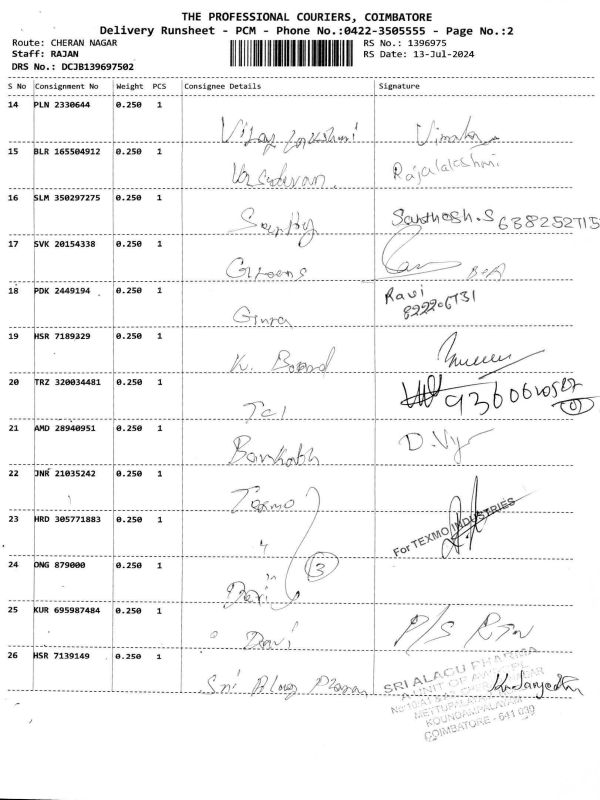 THE PROFESSIONAL COURIERS, COIMBATORE
Delivery Runsheet - PCM - Phone No.:0422-3505555 - Page No.:2
Route: CHERAN NAGAR RS No.: 1396975
Staff: RAJAN RS Date: 13-Jul-2024
DRS No.: DCJB139697502
S No Consignment No Weight PCS Consignee Details Signature
14 PLN 2330644 0.250 1
Vijay
15 BLR 165504912 0.250 1 Rajalakshmi
Vasudevan
16 SLM 350297275 0.250 1
Santhosh.S 638252715
17 SVK 20154338 0.250 1
Greens
18 PDK 2449194 0.250 1 Ravi
19 HSR 7189329 0.250 1
K. Board
20 TRZ 320034481 0.250 1
Tcl
21 AMD 28940951 0.250 1 D.
22 JNR 21035242 0.250 1
Texmo
23 HRD 305771883 0.250 1 For TEXMO INDUSTRIES
"
24 ONG 879000 0.250 1 3
Devi
25 KUR 695987484 0.250 1 P/S RTN
" Devi
26 HSR 7139149 0.250 1
Sri SRI ALAGU PHARMA
A UNIT OF
METTUPALAYAM
KOUNDAMPALAYAM
COIMBATORE - 641 030